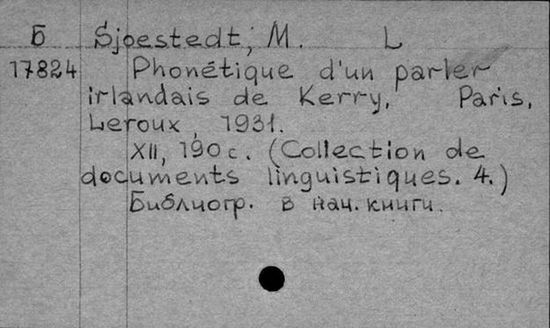 Б Sjoestedt, M. L
17824 Phonétique d'un parler
irlandais de Kerry. Paris,
Leroux, 1931.
XII, 190 с. (Collection de
documents linguistiques. 4.)
Библиогр. в нач. книги.